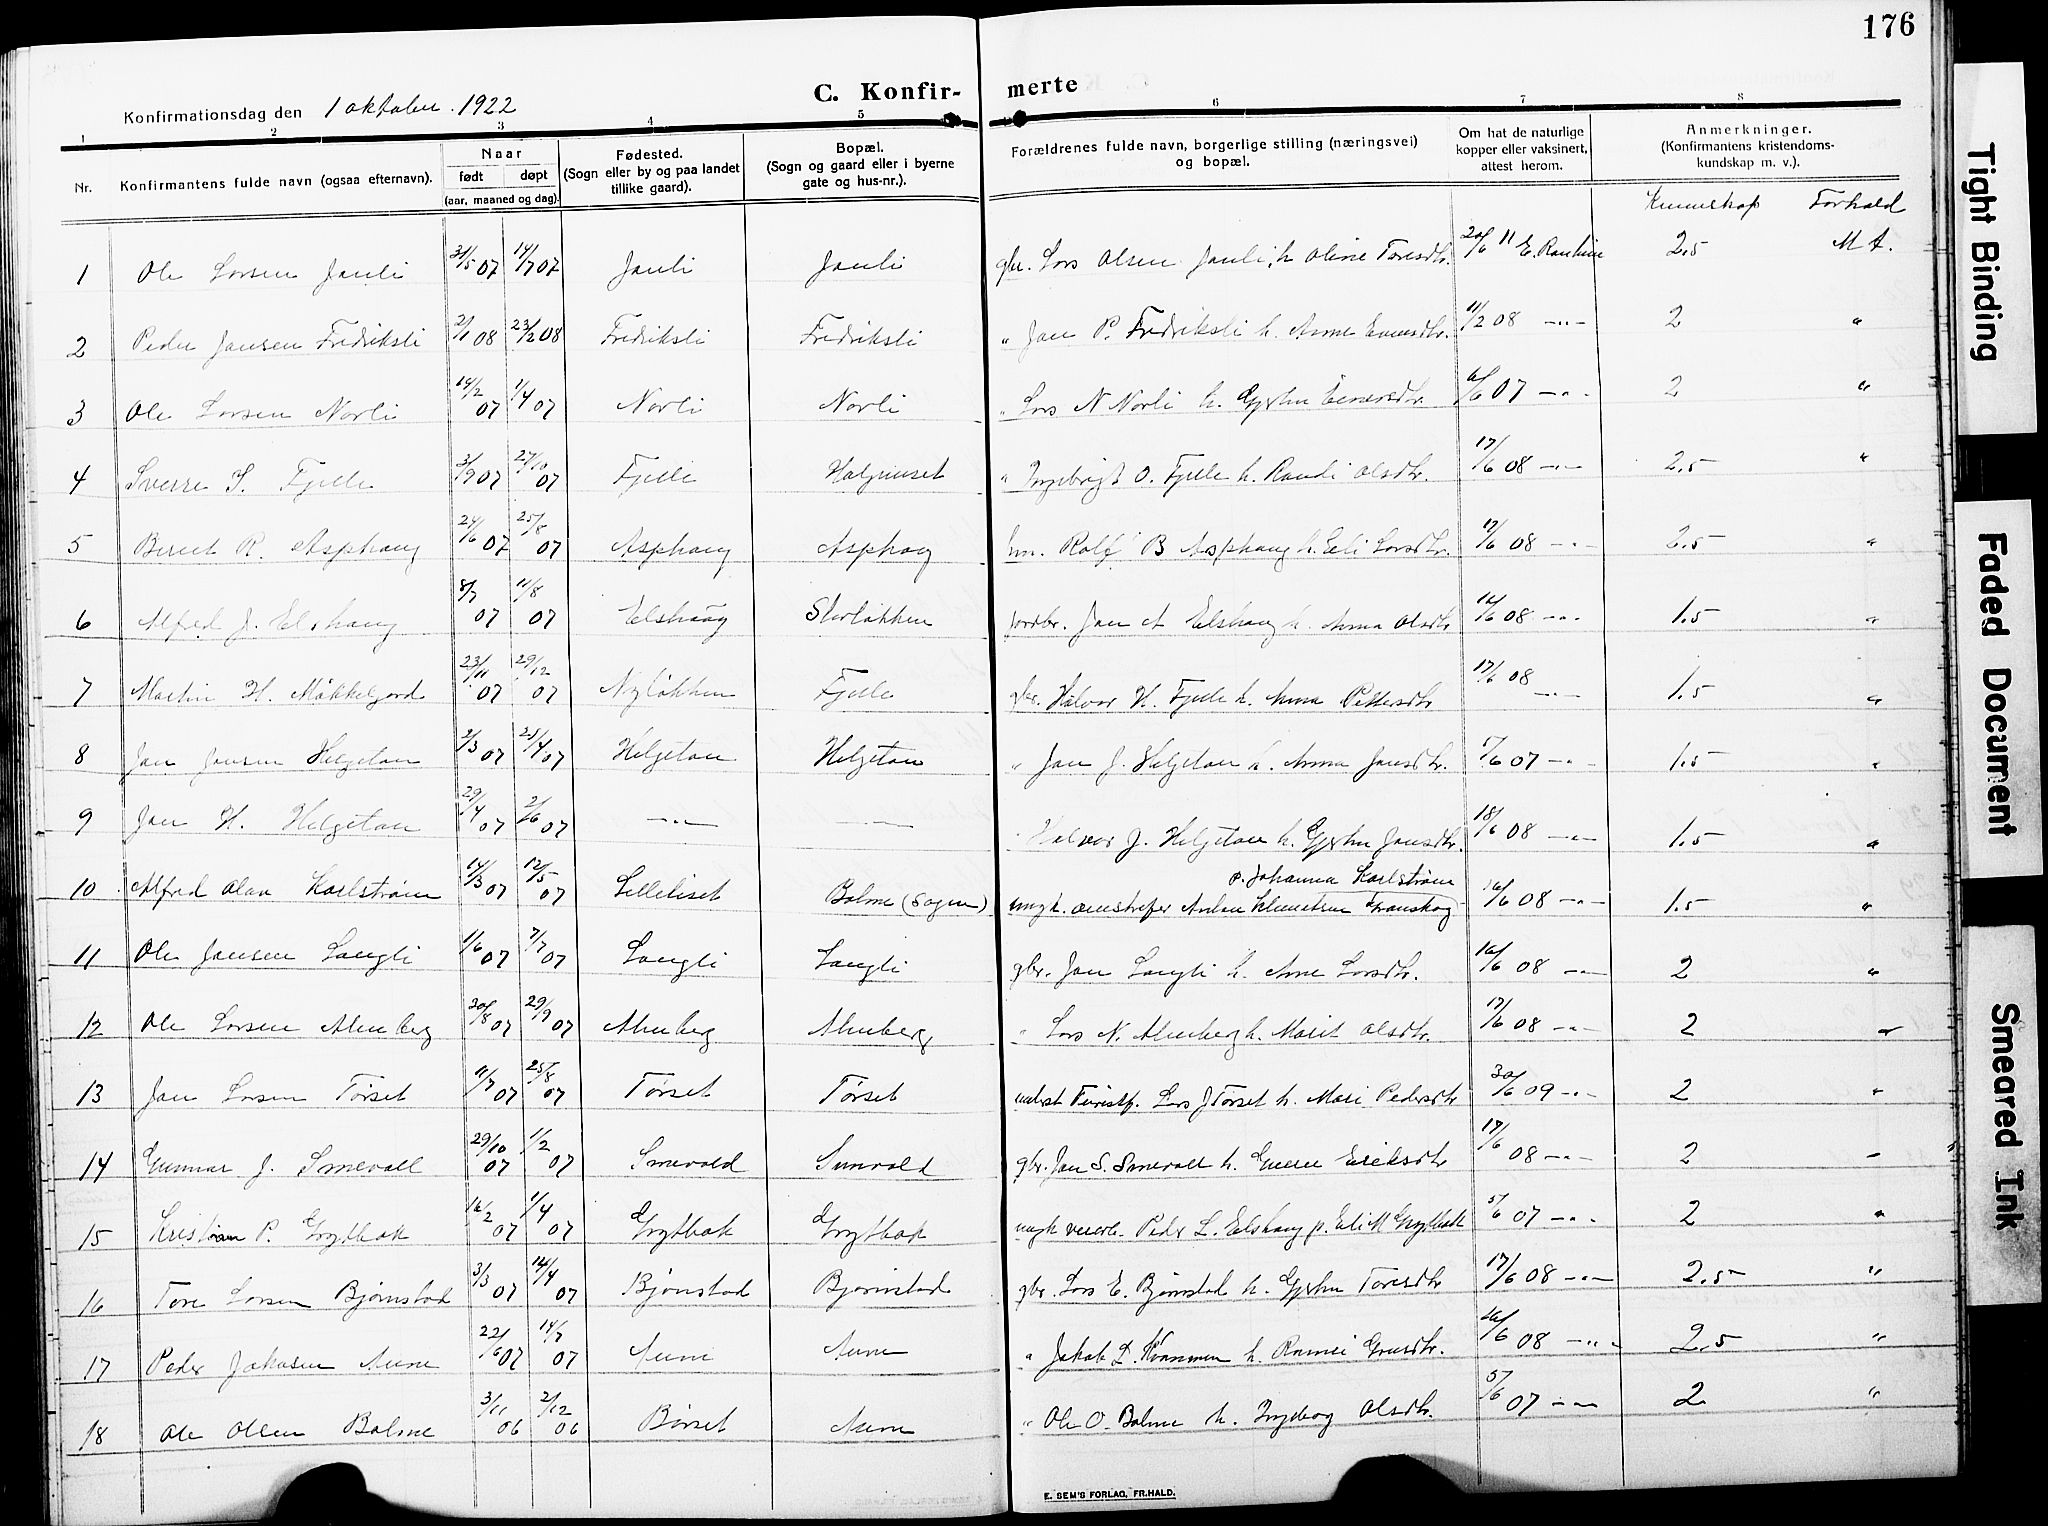 176
C. Konfir- merte
Konfirmationsdag den 1 oktober 1922
1 2 3 4 5 6 7 8
Nr. Konfirmantens fulde navn (ogsaa efternavn). Naar født døpt (aar, maaned og dag). Fødested. (Sogn eller by og paa landet tillike gaard). Bopæl. (Sogn og gaard eller i byerne gate og hus-nr.). Forældrenes fulde navn, borgerlige stilling (næringsvei) og bopæl. Om hat de naturlige kopper eller vaksinert, attest herom. Anmerkninger. (Konfirmantens kristendoms-kundskap m. v.).
Kunnskap Forhold
1 Ole Larsen Jauli 31/5 07 14/7 07 Jauli Jauli gbr. Lars Olsen Jauli, h. Oline Toresdtr. 20/6 11 E. 2.5 M A.
2 Peder Jansen Fredriksli 2/1 08 23/2 08 Fredriksli Fredriksli " Jan P. Fredriksli h. Anne 11/2 08 -"- 2 "
3 Ole Larsen Norli 14/2 07 1/4 07 Norli Norli " Lars N Norli h. Gjertru Einarsdtr. 6/6 07 -"- 2 "
4 Sverre I. Fjelle 3/9 07 27/10 07 Fjelle Halgunset " Ingebrigt O. Fjelle h. Randi Olsdtr. 17/6 08 -"- 2.5 "
5 Beret R. Asphaug 24/6 07 25/8 07 Asphaug Asphaug Rolf B Asphaug h. Eli Larsdtr. 17/6 08 -"- 2.5 "
6 Alfred J. Elshaug 8/7 07 11/8 07 Elshaug Storløkken jordbr. Jan A Elshaug h. Anna Olsdtr 16/6 08 -"- 1.5 "
7 Martin H. Møkkelgard 23/11 07 29/12 07 Nyløkken Fjelle gbr. Halvor H. Fjelle h. Anna Pettersdtr 17/6 08 -"- 1.5 "
8 Jan Jansen Helgetan 2/3 07 21/4 07 Helgetan Helgetan " Jan J. Helgetan h. Anna Jansdtr. 5/6 07 -"- 1.5 "
9 Jan H. Helgetan 29/4 07 2/6 07 -"- -"- Halvor J. Helgetan h. Gjertru Jansdtr. 18/6 08 -"- 1.5 "
p. Johanna Karlstrøm
10 Alfred Olav Karlstrøm 14/3 07 12/5 07 Lilleliset Balme (Sogn) ungk. Klemetsen Granskog 16/6 08 -"- 1.5 "
11 Ole Jansen Langli 1/6 07 7/7 07 Langli Langli gbr. Jan Langli h. Ane Larsdtr. 16/6 08 -"- 2 "
12 Ole Larsen Almberg 30/8 07 29/9 07 Almberg Almberg " Lars N. Almberg h. Marit Olsdtr. 17/6 08 -"- 2 "
13 Jan Larsen Tørset 11/7 07 25/8 07 Tørset Tørset Lars J Tørset h. Mari Pedersdtr 30/6 09 -"- 2 "
14 Gunnar J. Smevoll 29/10 07 1/2 07 Smevold Smevold gbr. Jan S. Smevoll h. Guru Eriksdtr 17/6 08 -"- 2 "
15 Kristian P. Grytbak 16/2 07 1/4 07 Grytbak Grytbak ungk Peder L. Elshaug p. Eli M Grytbak 5/6 07 -"- 2 "
16 Tore Larsen Bjørnstad 3/3 07 14/4 07 Bjørnstad Bjørnstad gbr. Lars E. Bjørnstad h. Gjertru Toresdtr 17/6 08 -"- 2.5 "
17 Peder Jakobsen Aune 22/6 07 14/7 07 Aune Aune " Jakob L. Kvammen h. 16/6 08 -"- 2.5 "
18 Ole Olsen Balme 3/11 06 2/12 06 Børset Aune " Ole O. Balme h. Ingeborg Olsdtr. 5/6 07 -"- 2 "
E. SEM'S FORLAG, FR.HALD.
Tight Binding
Faded Document
Smeared Ink